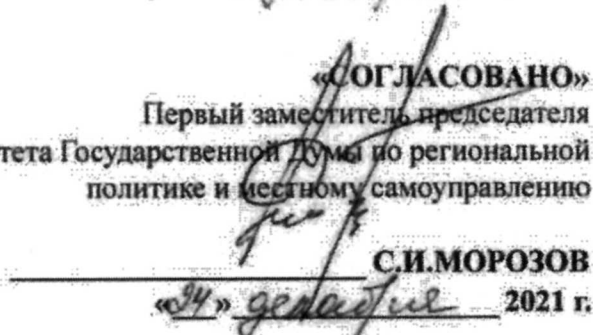 «СОГЛАСОВАНО»
Первый заместитель председателя
тета Государственной Думы по региональной
политике и местному самоуправлению
С.И.МОРОЗОВ
«24» декабря 2021 г.